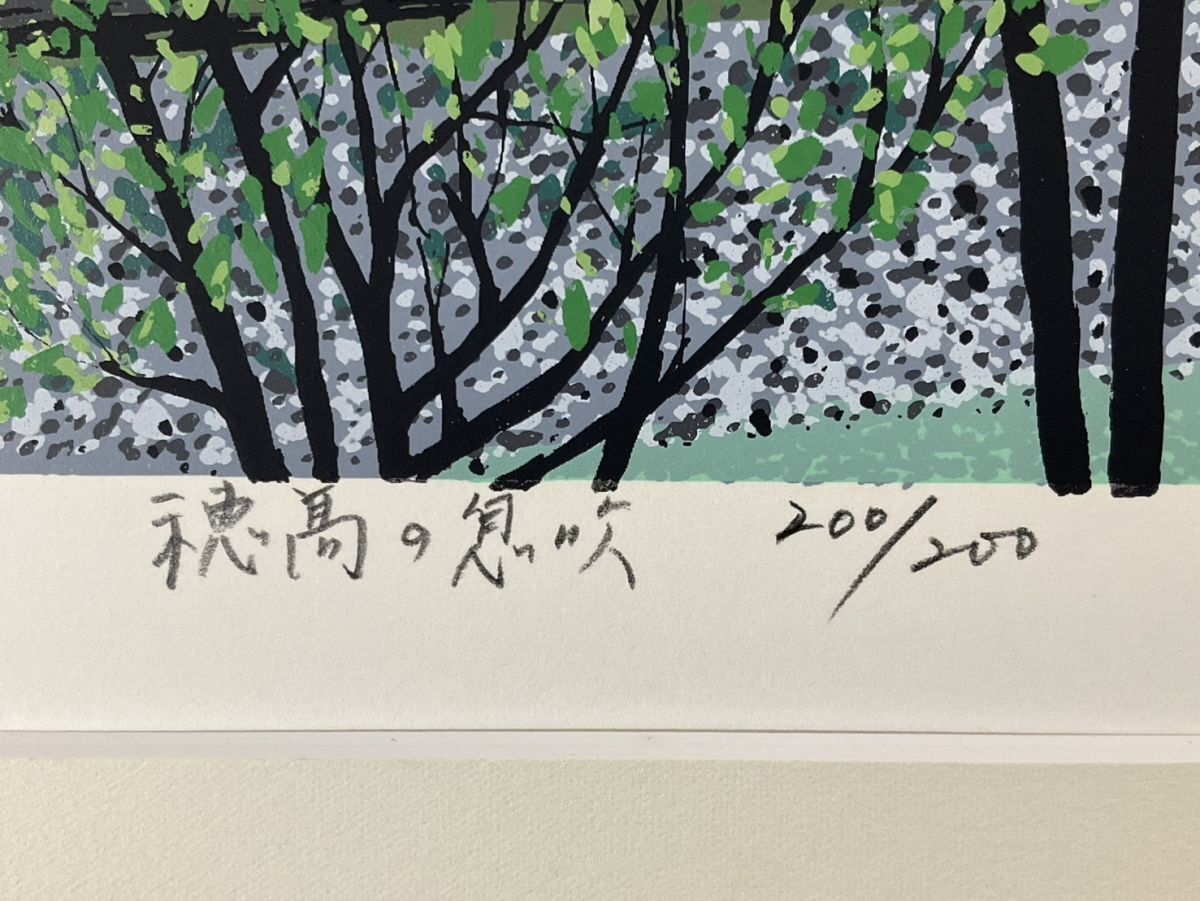 穂高の息吹 200/200